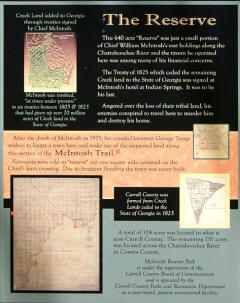 Creek Land added to Georgia
through treaties signed
by Chief McIntosh
The Reserve
This 640 acre "Reserve" was just a small portion
of Chief William McIntosh's vast holdings along the
Chattahoochee River and the tavern he operated
here was among many of his financial concerns.
The Treaty of 1825 which ceded the remaining
Creek land to the State of Georgia was signed at
McIntosh's hotel at Indian Springs. It was to be
his last.
Angered over the loss of their tribal land, his
enemies conspired to travel here to murder him
and destroy his home.
McIntosh was involved,
"at times under pressure"
in six treaties between 1805 & 1825
that had given up over 20 million
acres of Creek land to the
State of Georgia.
After the death of McIntosh in 1825, his cousin Governor George Troup
wished to locate a town here and make use of the improved land along
this section of the McIntosh Trail.
Surveyors were told to "reserve" out one square mile centered on the
Chief's ferry crossing. Due to frequent flooding the town was never built.
Carroll County was
formed from Creek
Lands ceded to the
State of Georgia in 1825
A total of 324 acres was located in what is
now Carroll County. The remaining 251 acres
was located across the Chattahoochee River
in Coweta County.
McIntosh Reserve Park
is under the supervision of the
Carroll County Board of Commissioners
and is operated by the
Carroll County Parks and Recreation Department
as a year-round, passive recreational facility.